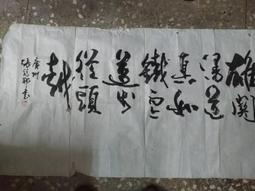 雄關
漫道
真如
鐵而今
邁步
從頭
越